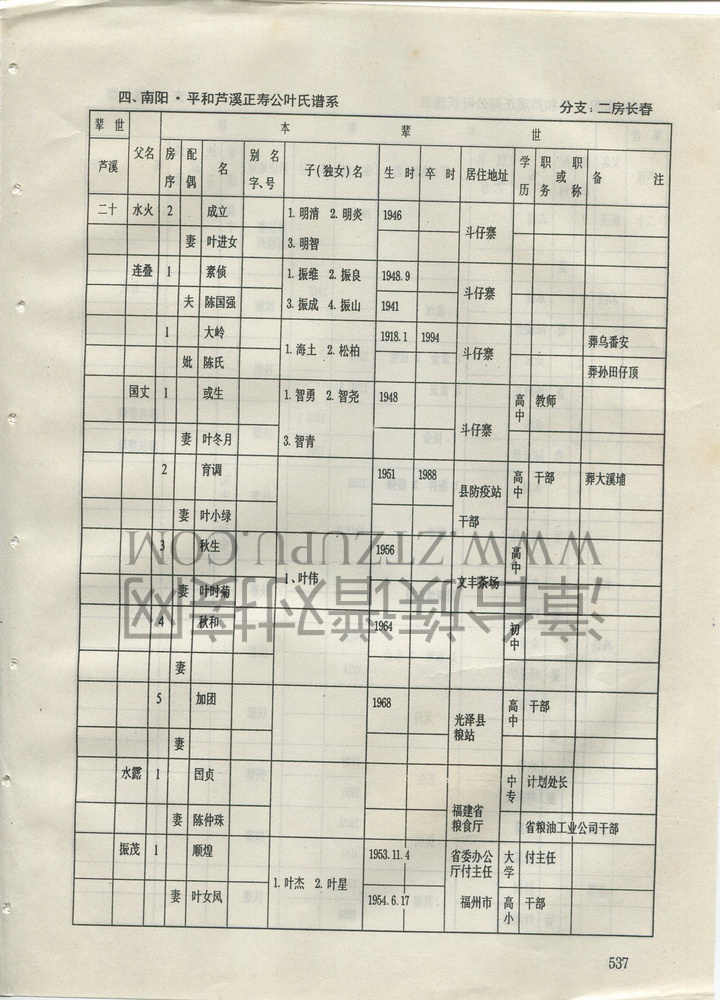 四、南阳·平和芦溪正寿公叶氏谱系 分支：二房长春
辈世 本 辈 世
芦溪 父名 房序 配偶 名 别名字、号 子(独女)名 生时 卒时 居住地址 学历 职务或职称 备注
二十 水火 2 成立 1.明清 2.明炎 1946 斗仔寨
妻 叶进女 3.明智
连叠 1 素侦 1.振维 2.振良 1948.9 斗仔寨
夫 陈国强 3.振成 4.振山 1941
1 大岭 1.海土 2.松柏 1918.1 1994 斗仔寨 葬乌番安
妣 陈氏 葬孙田仔顶
国丈 1 或生 1.智勇 2.智尧 1948 斗仔寨 高中 教师
妻 叶冬月 3.智青
2 育调 1951 1988 县防疫站 高中 干部 葬大溪埔
妻 叶小绿 干部
3 秋生 1、叶伟 1956 文丰茶场 高中
妻 叶时菊
4 秋和 1964 初中
妻
5 加团 1968 光泽县粮站 高中 干部
妻
水露 1 国贞 福建省粮食厅 中专 计划处长
妻 陈仲珠 省粮油工业公司干部
振茂 1 顺煌 1.叶杰 2.叶星 1953.11.4 省委办公厅付主任 大学 付主任
妻 叶女凤 1954.6.17 福州市 高小 干部
537
WWW.ZTZUPU.COM
漳台族谱对接网